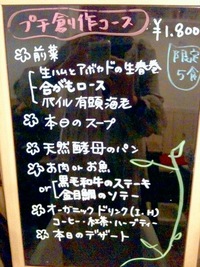 プチ創作コース
¥1.800
限定
5食
前菜
生ハムとアボカドの生春巻
合がもロース
ボイル有頭海老
本日のスープ
天然酵母のパン
お肉 or お魚
黒毛和牛のステーキ
or
金目鯛のソテー
オーガニックドリンク(I.H)
コーヒー・紅茶・ハーブティー
本日のデザート